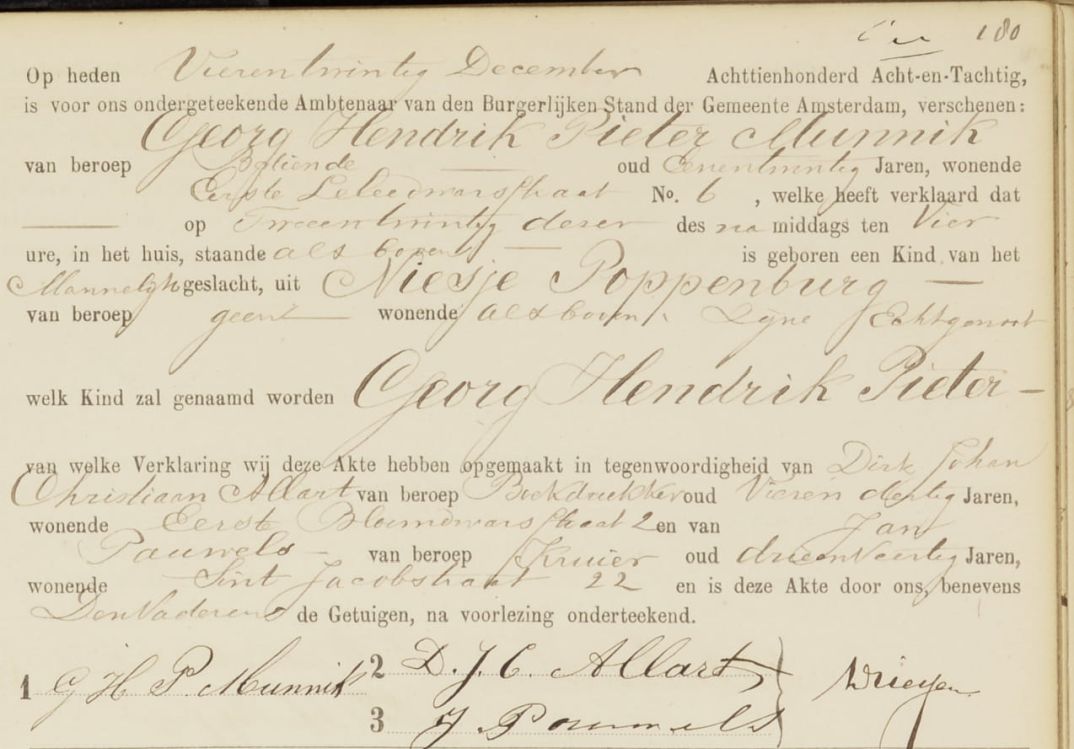 180
Op heden Vierentwintig December Achttienhonderd Acht-en-Tachtig,
is voor ons ondergeteekende Ambtenaar van den Burgerlijken Stand der Gemeente Amsterdam, verschenen:
Georg Hendrik Pieter Munnik
van beroep Bediende oud Eenentwintig Jaren, wonende
Eerste Leliedwarsstraat No. 6 , welke heeft verklaard dat
op Tweeentwintig dezer des na middags ten Vier
ure, in het huis, staande als boven is geboren een Kind van het
Mannelijk geslacht, uit Niesje Poppenburg
van beroep geene wonende als boven, Zijne Echtgenoot
welk Kind zal genaamd worden Georg Hendrik Pieter
van welke Verklaring wij deze Akte hebben opgemaakt in tegenwoordigheid van Dirk Johan
Christiaan Allart van beroep Boekdrukker oud Vieren dertig Jaren,
wonende Eerste Bloemdwarsstraat 2 en van Jan
Pauwels van beroep Kruier oud drieenveertig Jaren,
wonende Sint Jacobstraat 22 en is deze Akte door ons, benevens
Den Vader en de Getuigen, na voorlezing onderteekend.
1 G H P. Munnik 2 D. J. C. Allart
3 J. Pouwels